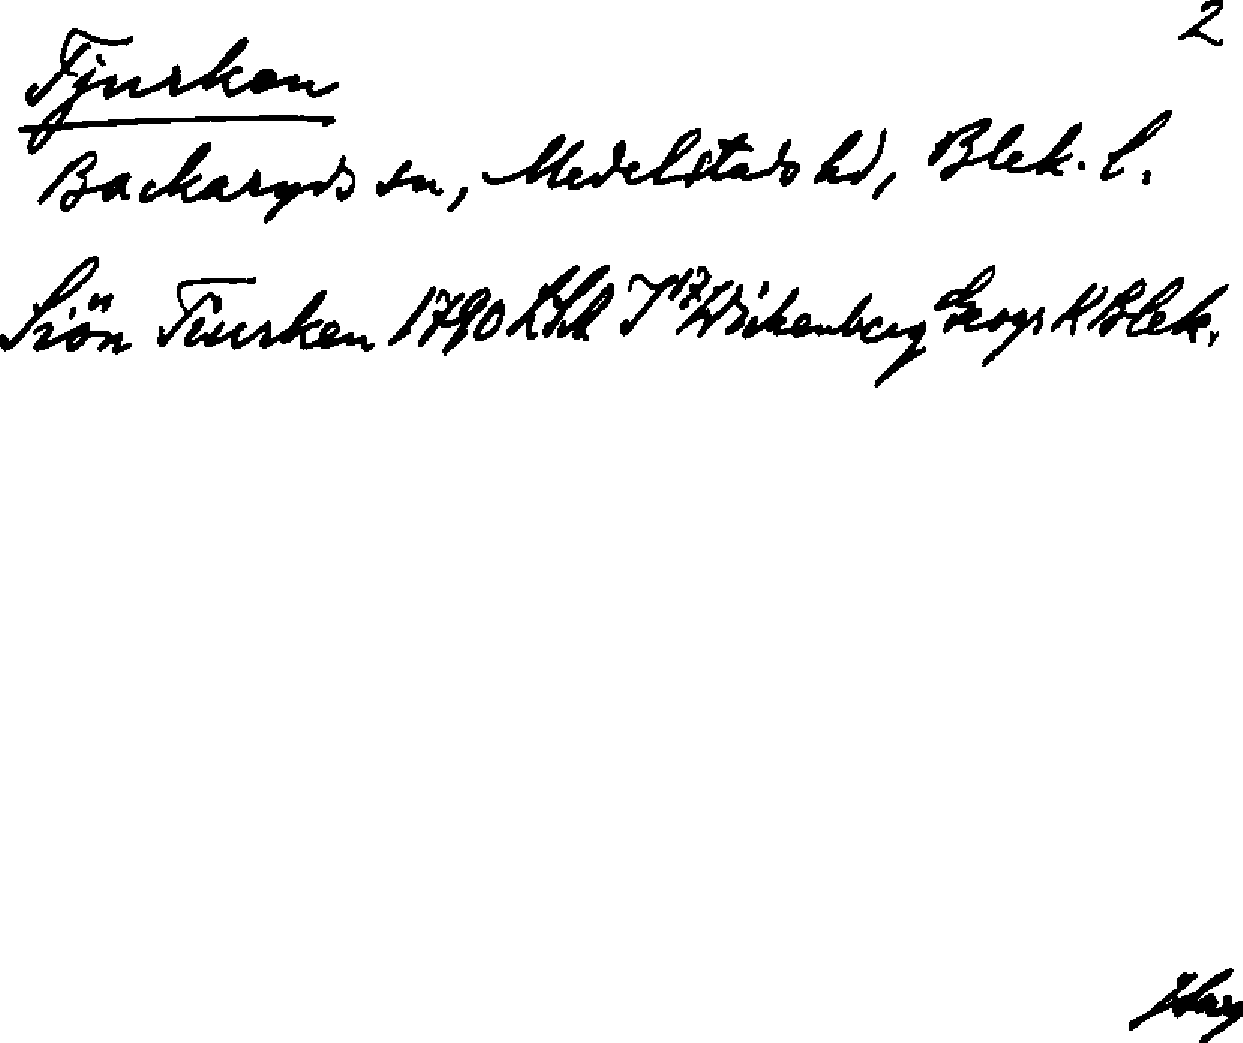 2
Tjurken
Backaryds sn, Medelstads hd, Blek. l.
Siön Tiurken 1790 Wikenberg Geogr K Blek.